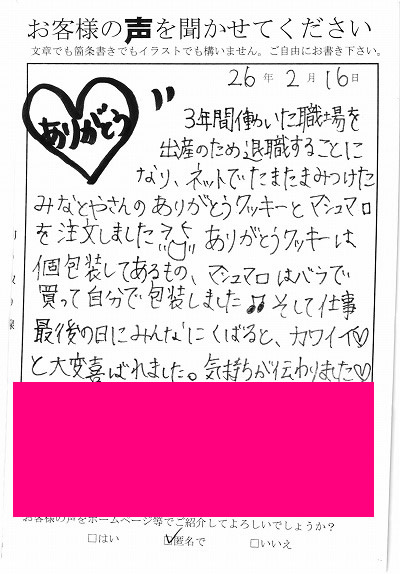 お客様の声を聞かせてください
文章でも箇条書きでもイラストでも構いません。ご自由にお書き下さい。
26年2月16日
ありがとう
3年間働いた職場を
出産のため退職することに
なり、ネットでたまたまみつけた
みなとやさんのありがとうクッキーとマシュマロ
を注文しました ありがとうクッキーは
個包装してあるもの、マシュマロはバラで
買って自分で包装しました♫ そして仕事
最後の日にみんなにくばると、カワイイ♡
と大変喜ばれました。気持ちが伝わりました♡
お客様の声をホームページ等でご紹介してよろしいでしょうか？
□はい ☑匿名で □いいえ